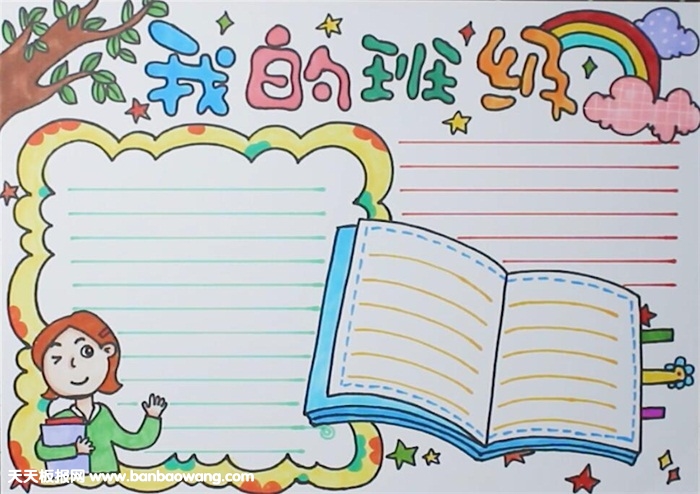 我的班级
天天板报网 www.banbaowang.com